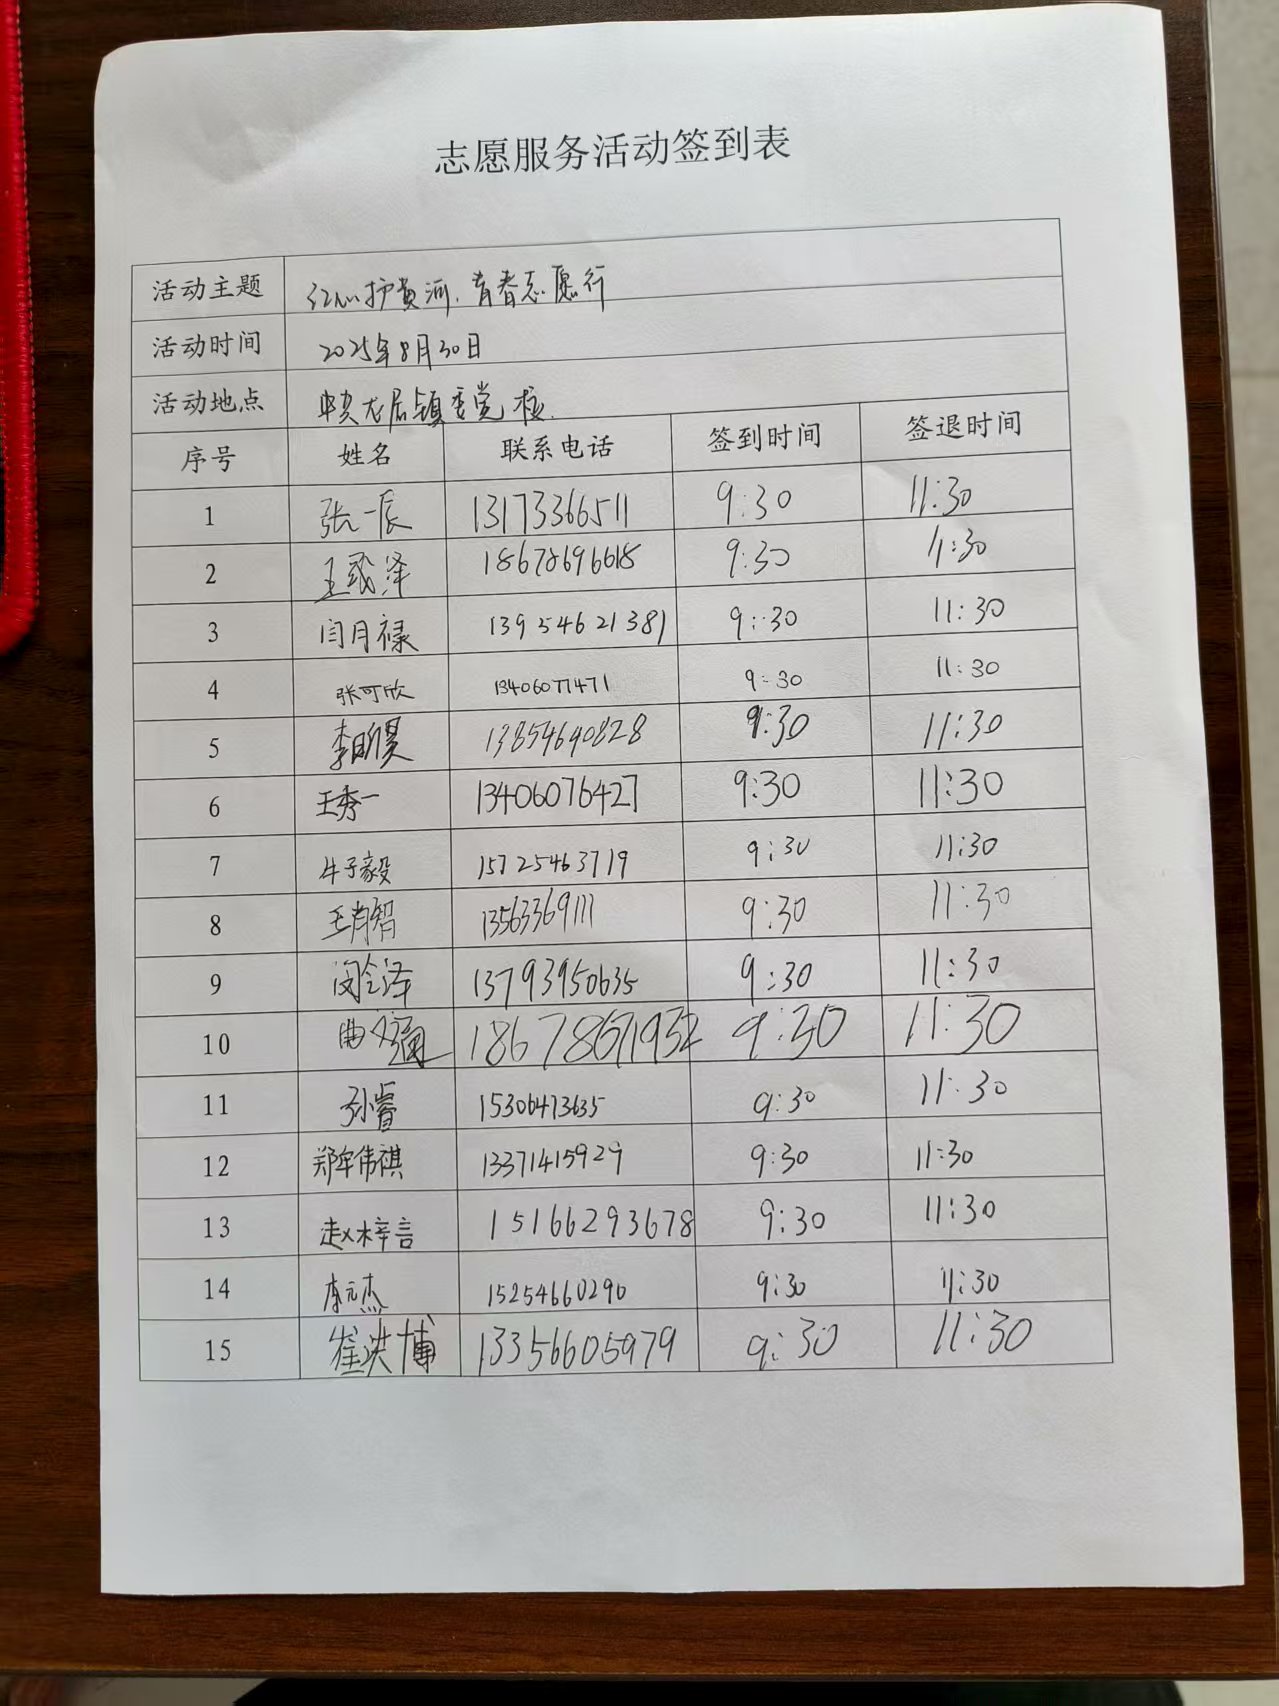 志愿服务活动签到表
活动主题 红心护黄河，青春志愿行
活动时间 2025年8月30日
活动地点 龙居镇委党校
序号 姓名 联系电话 签到时间 签退时间
1 张一辰 13173366511 9:30 11:30
2 王彧泽 18678696618 9:30 11:30
3 闫月禄 13954621381 9:30 11:30
4 张可欣 13406077471 9:30 11:30
5 李昕昊 13854640828 9:30 11:30
6 王秀一 13406076427 9:30 11:30
7 牛子毅 15725463719 9:30 11:30
8 王肖智 13563369111 9:30 11:30
9 闵令泽 13793950635 9:30 11:30
10 曲文强 18678671932 9:30 11:30
11 孙睿 15306473635 9:30 11:30
12 郑牟伟祺 13371415929 9:30 11:30
13 赵梓言 15166293678 9:30 11:30
14 李元杰 15254660290 9:30 11:30
15 崔洪博 13356605979 9:30 11:30